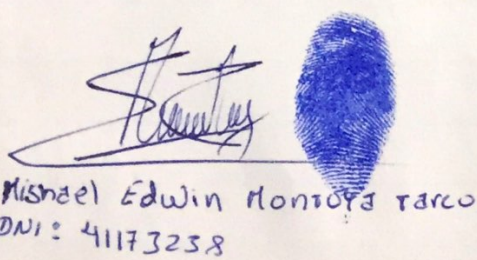 Mishael Edwin Montoya Tarco
DNI: 41173238